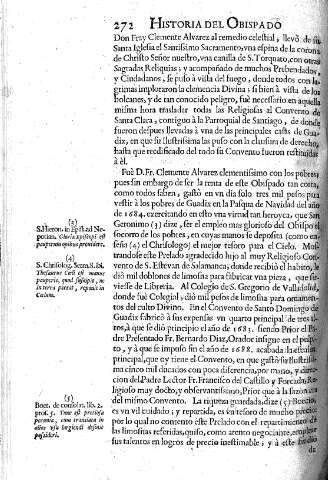 272 HISTORIA DEL OBISPADO
Don Frey Clemente Alvarez al remedio celestial, llevò de su
Santa Iglesia el Santisimo Sacramento, vna espina de la corona
de Christo Señor nuestro, vna canilla de S. Torquato, con otras
Sagradas Reliquias; y acompañado de muchos Prebendados,
y Ciudadanos, se puso à vista del fuego, donde todos con la-
grimas imploraron la clemencia Divina; si bien à vista de los
bolcanes, y de tan conocido peligro, fuè necessario en aquella
misma hora trasladar todas las Religiosas al Convento de
Santa Clara, contiguo à la Parroquial de Santiago, de donde
fueron despues llevadas à vna de las principales casas de Gua-
dix, en que su Ilustrisima las puso con la clausura de derecho,
hasta que reedificado del todo su Convento fueron restituidas
à èl.
Fuè D. Fr. Clemente Alvarez clementisimo con los pobres,
pues sin embargo de ser la renta de este Obispado tan corta,
como todos saben, gastò en vn dia solo tres mil pesos para
vestir à los pobres de Guadix en la Pasqua de Navidad del año
de 1684. exercitando en esto vna virtud tan heroyca, que San
Geronimo (3) dize, ser el empleo mas glorioso del Obispo el
socorro de los pobres, en cuyas manos se deposita (como en-
seña (4) el Chrisologo) el mejor tesoro para el Cielo. Mos-
trandose este Prelado agradecido hijo al muy Religioso Con-
vento de S. Estevan de Salamanca, donde recibiò el habito, le
diò mil doblones de limosna para fabricar vna pieza, que sir-
viesse de Libreria. Al Colegio de S. Gregorio de Valladolid,
donde fuè Colegial, diò mil pesos de limosna para ornamen-
tos del culto Divino. En el Convento de Santo Domingo de
Guadix fabricò à sus expensas vn quarto principal de tres al-
tos, à que se diò principio el año de 1683. siendo Prior el Pa-
dre Presentado Fr. Bernardo Diaz, Orador insigne en el pulpi-
to, y à que se impuso fin el año de 1688. acabada la estancia
principal, que oy tiene el Convento, en que gastò su Ilustrisi-
ma cinco mil ducados con poca diferencia, por mano, y direc-
cion del Padre Lector Fr. Francisco del Castillo y Forcada, Re-
ligioso muy docto, y observantisimo, Prior que à la sazon era
del mismo Convento. La riqueza guardada, dize (5) Boecio,
es vn vil cuidado; y repartida, es vn tesoro de mucho precio;
por lo qual no contento este Prelado con el repartimiento de
las limosnas referidas, quiso, como atento negociante, emplear
sus talentos en logros de precio inestimable; y à este
(3)
S. Hieron. in Epist. ad Ne-
potian. Gloria episcopi est
pauperum opibus providere.
(4)
S. Chrisolog. Serm. 8. ibi.
Thesaurus Cæli est manus
pauperis, quod suscipit, ne
in terra pereat, reponit in
Cælum.
(5)
Boet. de consolat. lib. 2.
pros. 5. Tunc est pretiosa
pecunia, cum translata in
alios usu largiendi desinit
possideri.